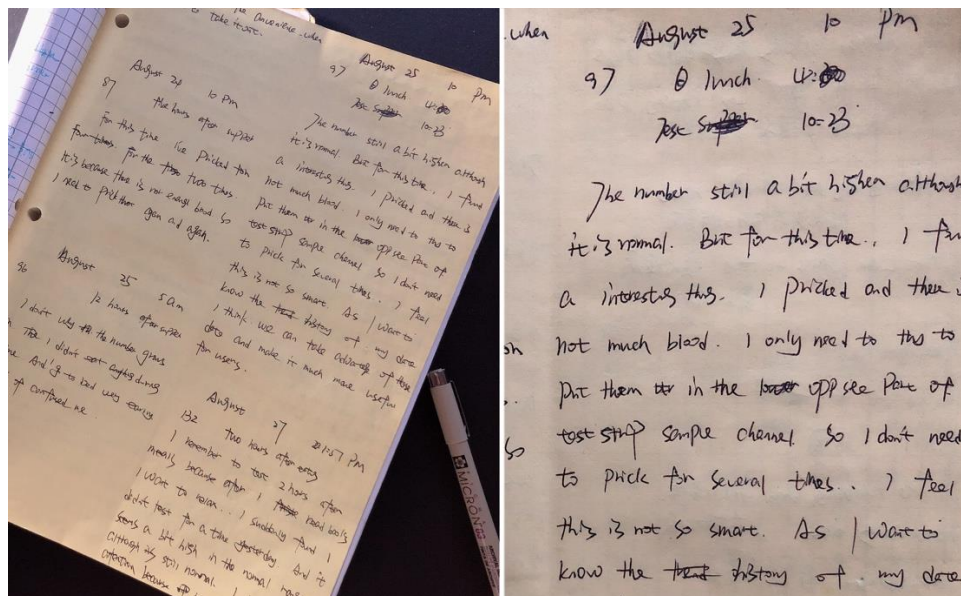 The convenience. when
to take it out.
August 24 10 Pm
87 two hours after supper
For this time I've pricked
for the two times
It is because there is not enough blood so
I need to prick ther again and again.
August 25 5 am
96 12 hours after
I don't why the number grows
time I didn't eat anything during
And go to bed very early
of confused me
August 25 10 Pm
97 lunch 4:
Test 10:23
The number still a bit higher although
it is normal. But for this time., I found
a interesting this. I pricked and there is
not much blood. I only need to this to
put them in the oppsee Part of
test strip sample channel. So I don't need
to prick for several times.. I feel
this is not so smart. As I want to
know the history of my data
I think we can take advantage of these
data and make it much more useful
for users.
August 27 57 Pm
132 two hours after
I remember to test 2 hours after
meals because after I read books
I want to relax.. I suddenly found I
didn't test for a time yesterday. And it
seems a bit high in the normal
although it's still normal.
attention because of
MICRON
when August 25 10 Pm
97 lunch 4:
Test 10:23
The number still a bit higher although
it is normal. But for this time., I
a interesting this. I pricked and there
not much blood. I only need to this to
put them in the oppsee Part of
test strip sample channel. So I don't need
so to prick for several times.. I feel
this is not so smart. As I want to
know the history of my data